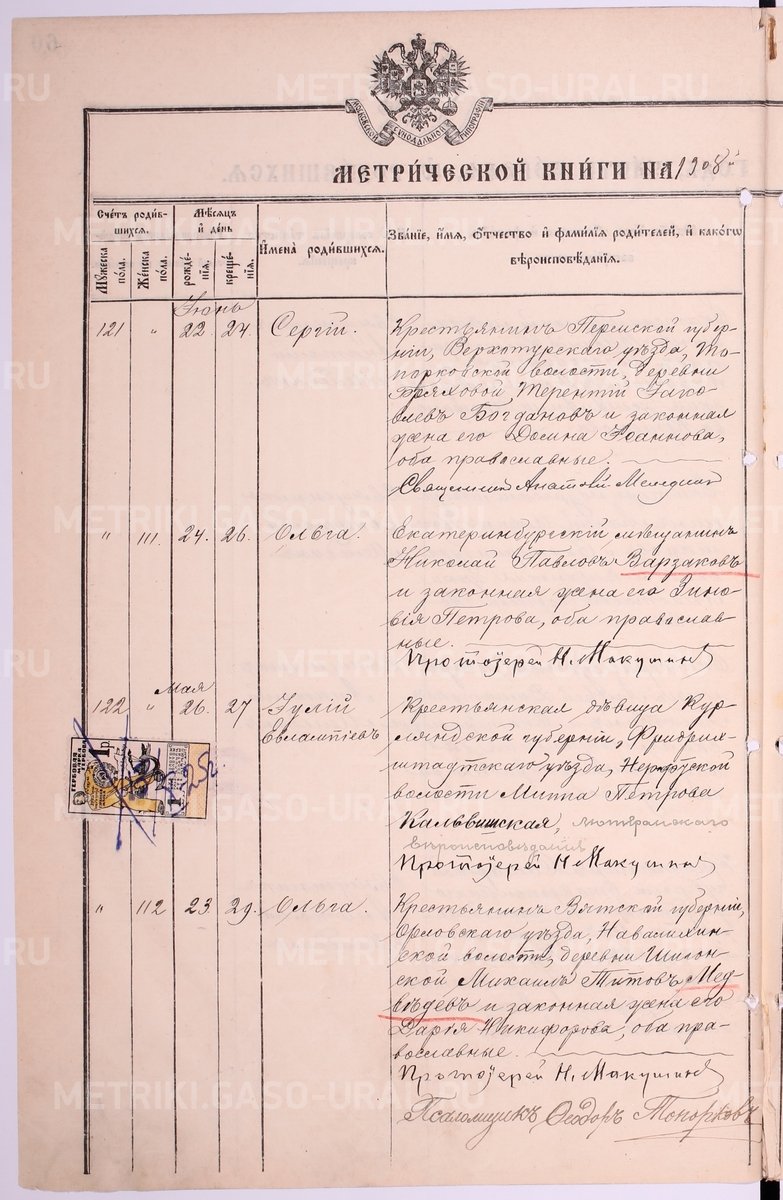 МОСКОВСКОЙ СѴНОДАЛЬНОЙ ТИПОГРАФІИ
МЕТРИ́ЧЕСКОЙ КНИ́ГИ НА 1908 й
Сче́тъ роди́в-
шихся.
Мѣ́сяцъ
и҆ де́нь
И҆мена̀ роди́вшихся.
Зва́нїе, и҆́мя, ѻ҆́тчество и҆ фами́лїя роди́телей, и҆ како́гѡ
вѣроисповѣ́данїя.
Мꙋ́жеска
по́ла.
Же́нска
по́ла.
рожде́-
нїя.
креще́-
нїя.
Іюнь
121 " 22. 24. Сергій.
Крестьянинъ Пермской губер-
ніи, Верхотурскаго уѣзда, То-
порковской волости, деревни
Бряховой, Терентій Іако-
влевъ Богдановъ и законная
жена его Домна Іоаннова,
оба православные.
Священникъ
" 111. 24. 26. Ольга.
Екатеринбургскій мѣщанинъ
Николай Павловъ Варзаковъ
и законная жена его Зино-
вія Петрова, оба православ-
ные.
Протоіерей Н. Макушинъ
Мая
122 " 26. 27 Іулій
Евлампіевъ
Крестьянская дѣвица Кур-
ляндской губерніи, Фридрих-
штадтскаго уѣзда,
волости Минна Петрова
Кальвишская, лютеранскаго
вѣроисповѣданія
Протоіерей Н. Макушинъ
ГЕРБОВАЯ
МАРКА
1 р.
" 112 23. 29. Ольга.
Крестьянинъ Вятской губерніи,
Орловскаго уѣзда, Навалихин-
ской волости, деревни Шигон-
ской Михаилъ Титовъ Мед-
вѣдевъ и законная жена его
Дарія Никифорова, оба пра-
вославные.
Протоіерей Н. Макушинъ
Псаломщикъ Ѳеодоръ Топорковъ
METRIKI.GASO-URAL.RU